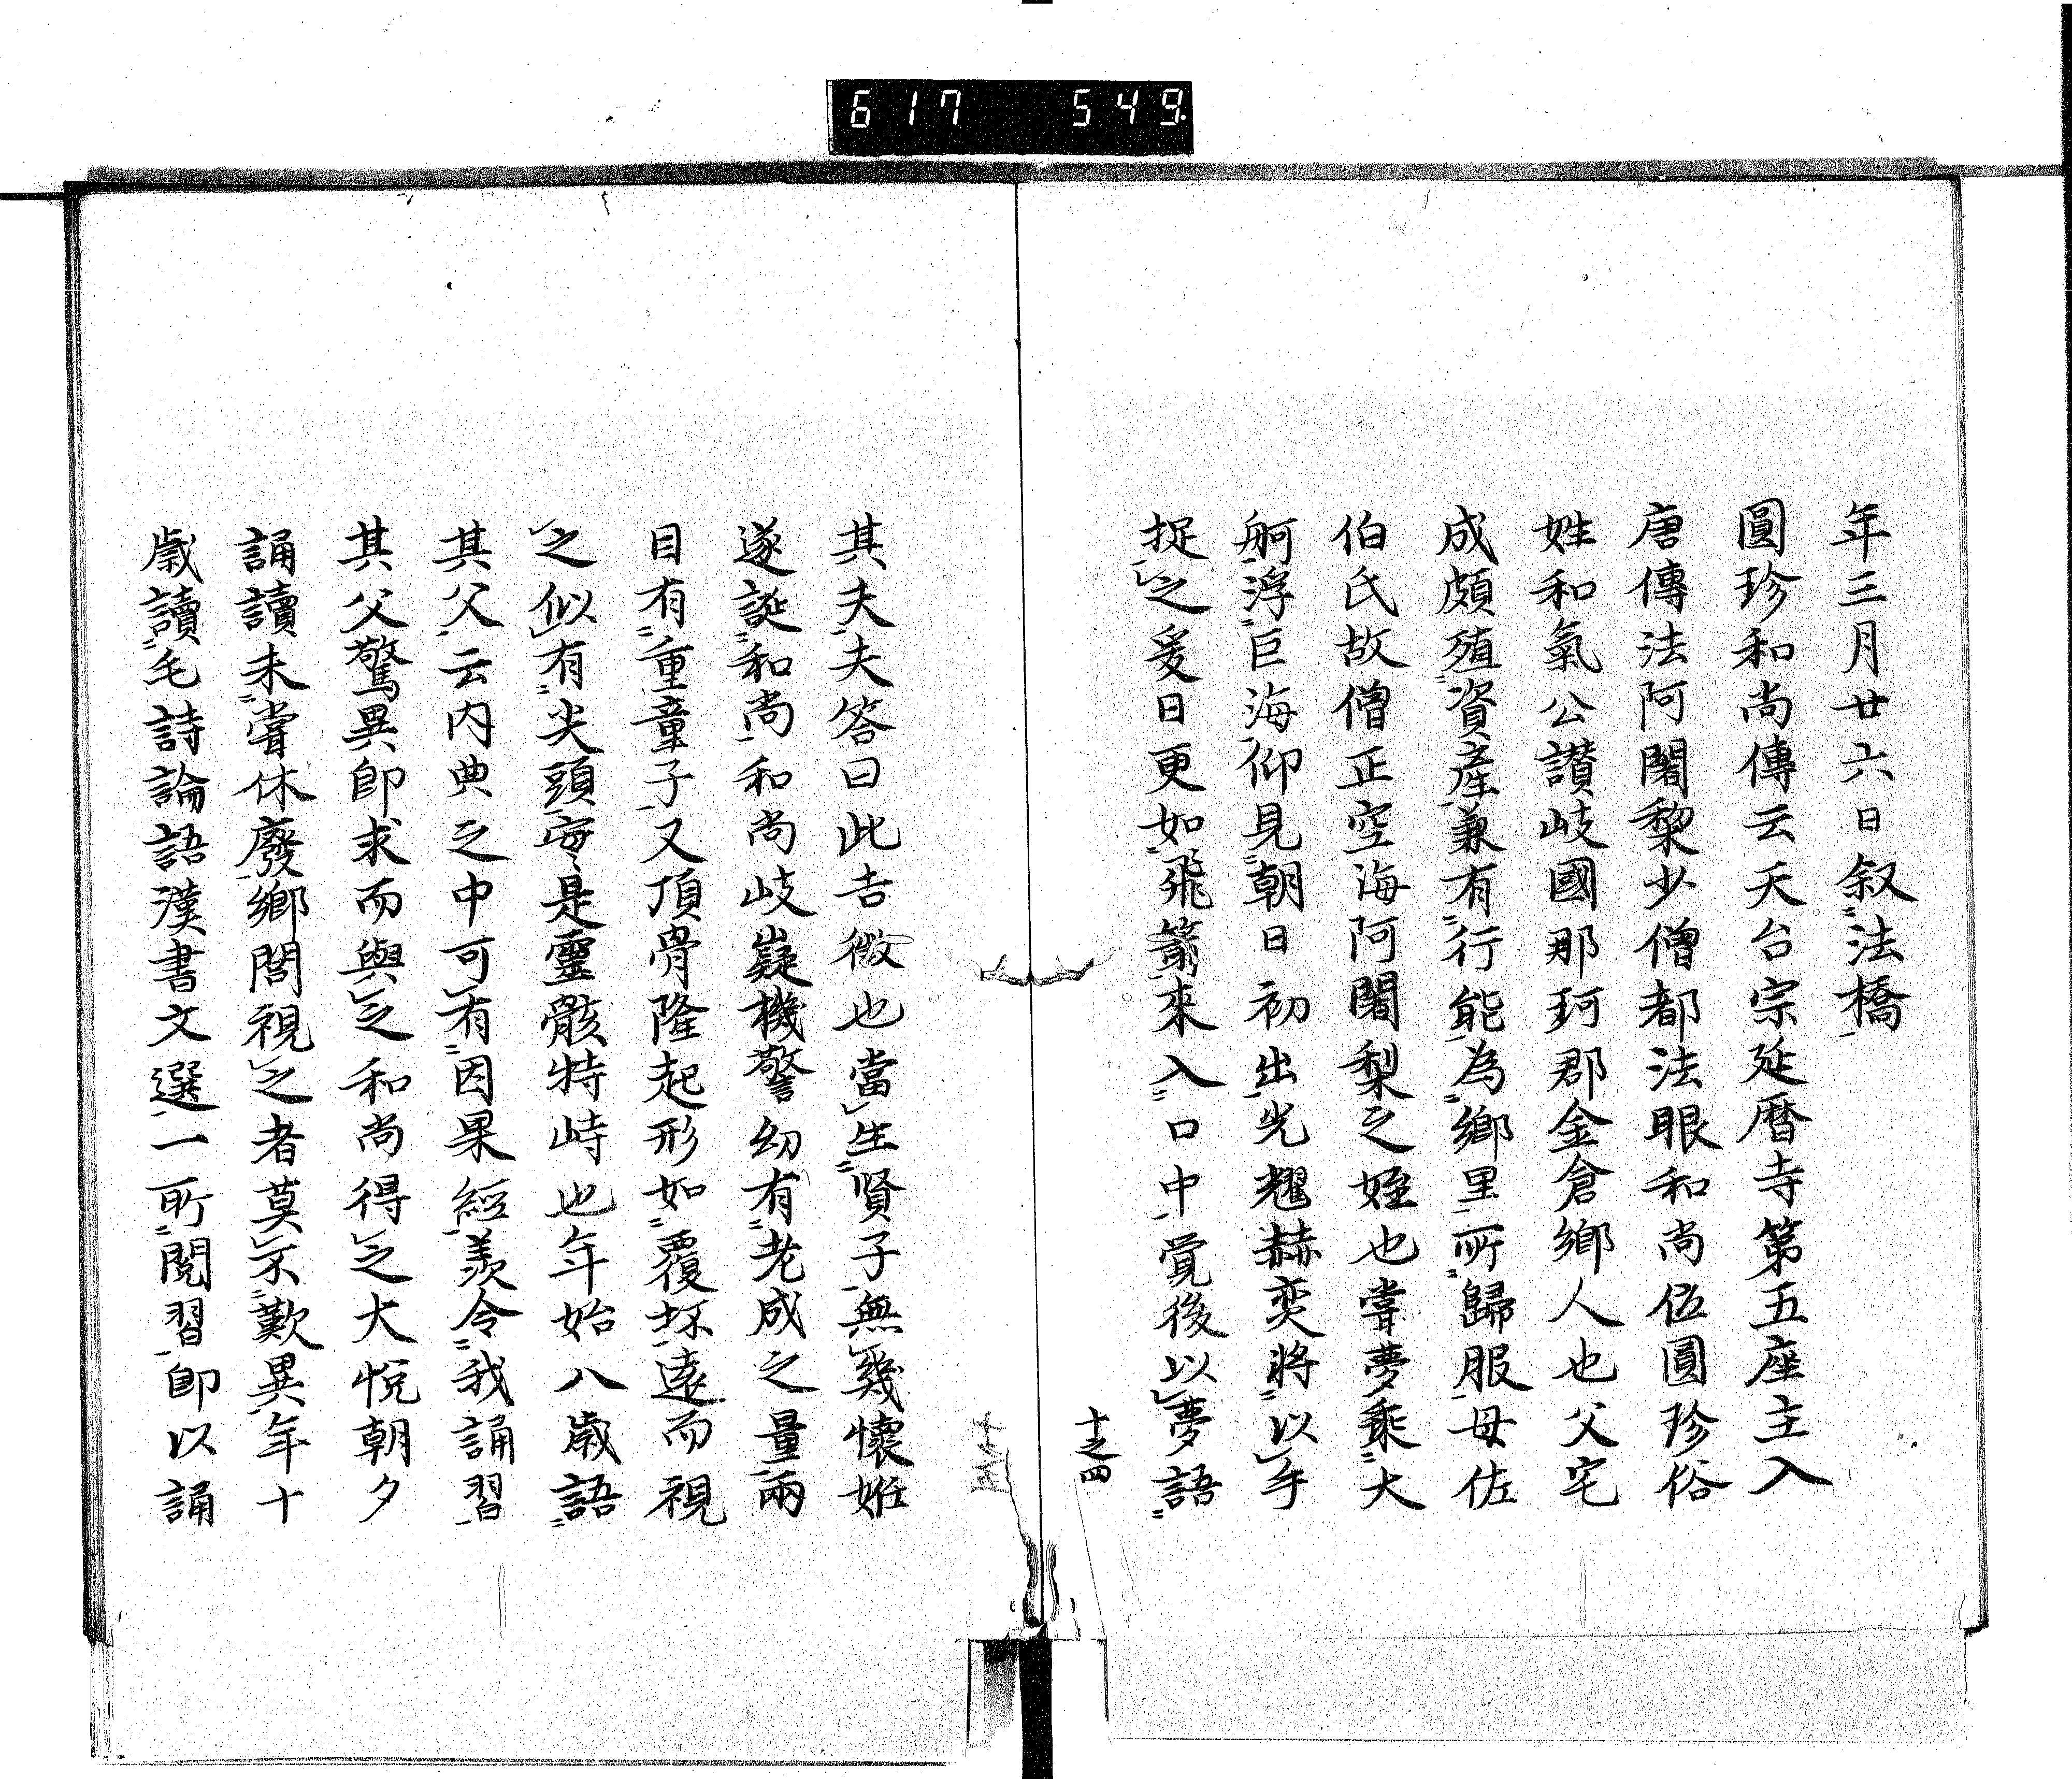 617 549.
年三月廿六日叙法橋
圓珍和尚傳云天台宗延暦寺第五座主入
唐傳法阿闍梨少僧都法眼和尚位圓珍俗
姓和氣公讃岐國那珂郡金倉郷人也父宅
成頗殖資産兼有行能為郷里所歸服母佐
伯氏故僧正空海阿闍梨之姪也嘗夢乘大
舸浮巨海仰見朝日初出光耀赫奕將以手
捉之爰日更如飛箭來入口中覚後以夢語
十之四
其夫夫答曰此吉徴也當生賢子無幾懐姙
遂誕和尚和尚岐嶷機警幼有老成之量兩
目有重童子又頂骨隆起形如覆坏遠而視
之似有尖頭寔是靈骸特峙也年始八歳語
其父云内典之中可有因果經羨令我誦習
其父驚異即求而與之和尚得之大悦朝夕
誦讀未嘗休廢郷閭視之者莫不歎異年十
歳讀毛詩論語漢書文選一所閲習即以誦